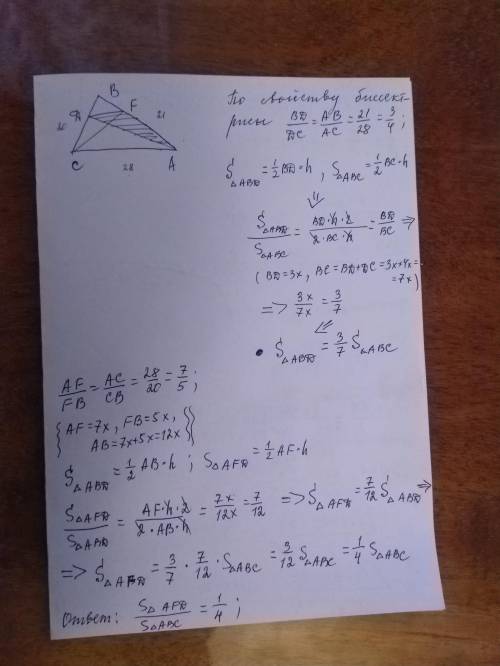 B
D F 21
20
C 28 A
По свойству биссект-
рисы BD/DC = AB/AC = 21/28 = 3/4;
S△ABD = 1/2 BD·h, S△ABC = 1/2 BC·h
⇓
S△ABD/S△ABC = BD·h·2/2·BC·h = BD/BC ⇒
(BD=3x, BC=BD+DC=3x+4x=
=7x)
=> 3x/7x = 3/7
⇓
• S△ABD = 3/7 S△ABC
AF/FB = AC/CB = 28/20 = 7/5;
{AF=7x, FB=5x,
AB=7x+5x=12x}
S△ABD = 1/2 AB·h; S△AFD = 1/2 AF·h
S△AFD/S△ABD = AF·h·2/2·AB·h = 7x/12x = 7/12 => S△AFD = 7/12 S△ABD ⇒
=> S△AFD = 3/7 · 7/12 · S△ABC = 3/12 S△ABC = 1/4 S△ABC
Ответ: S△AFD/S△ABC = 1/4;